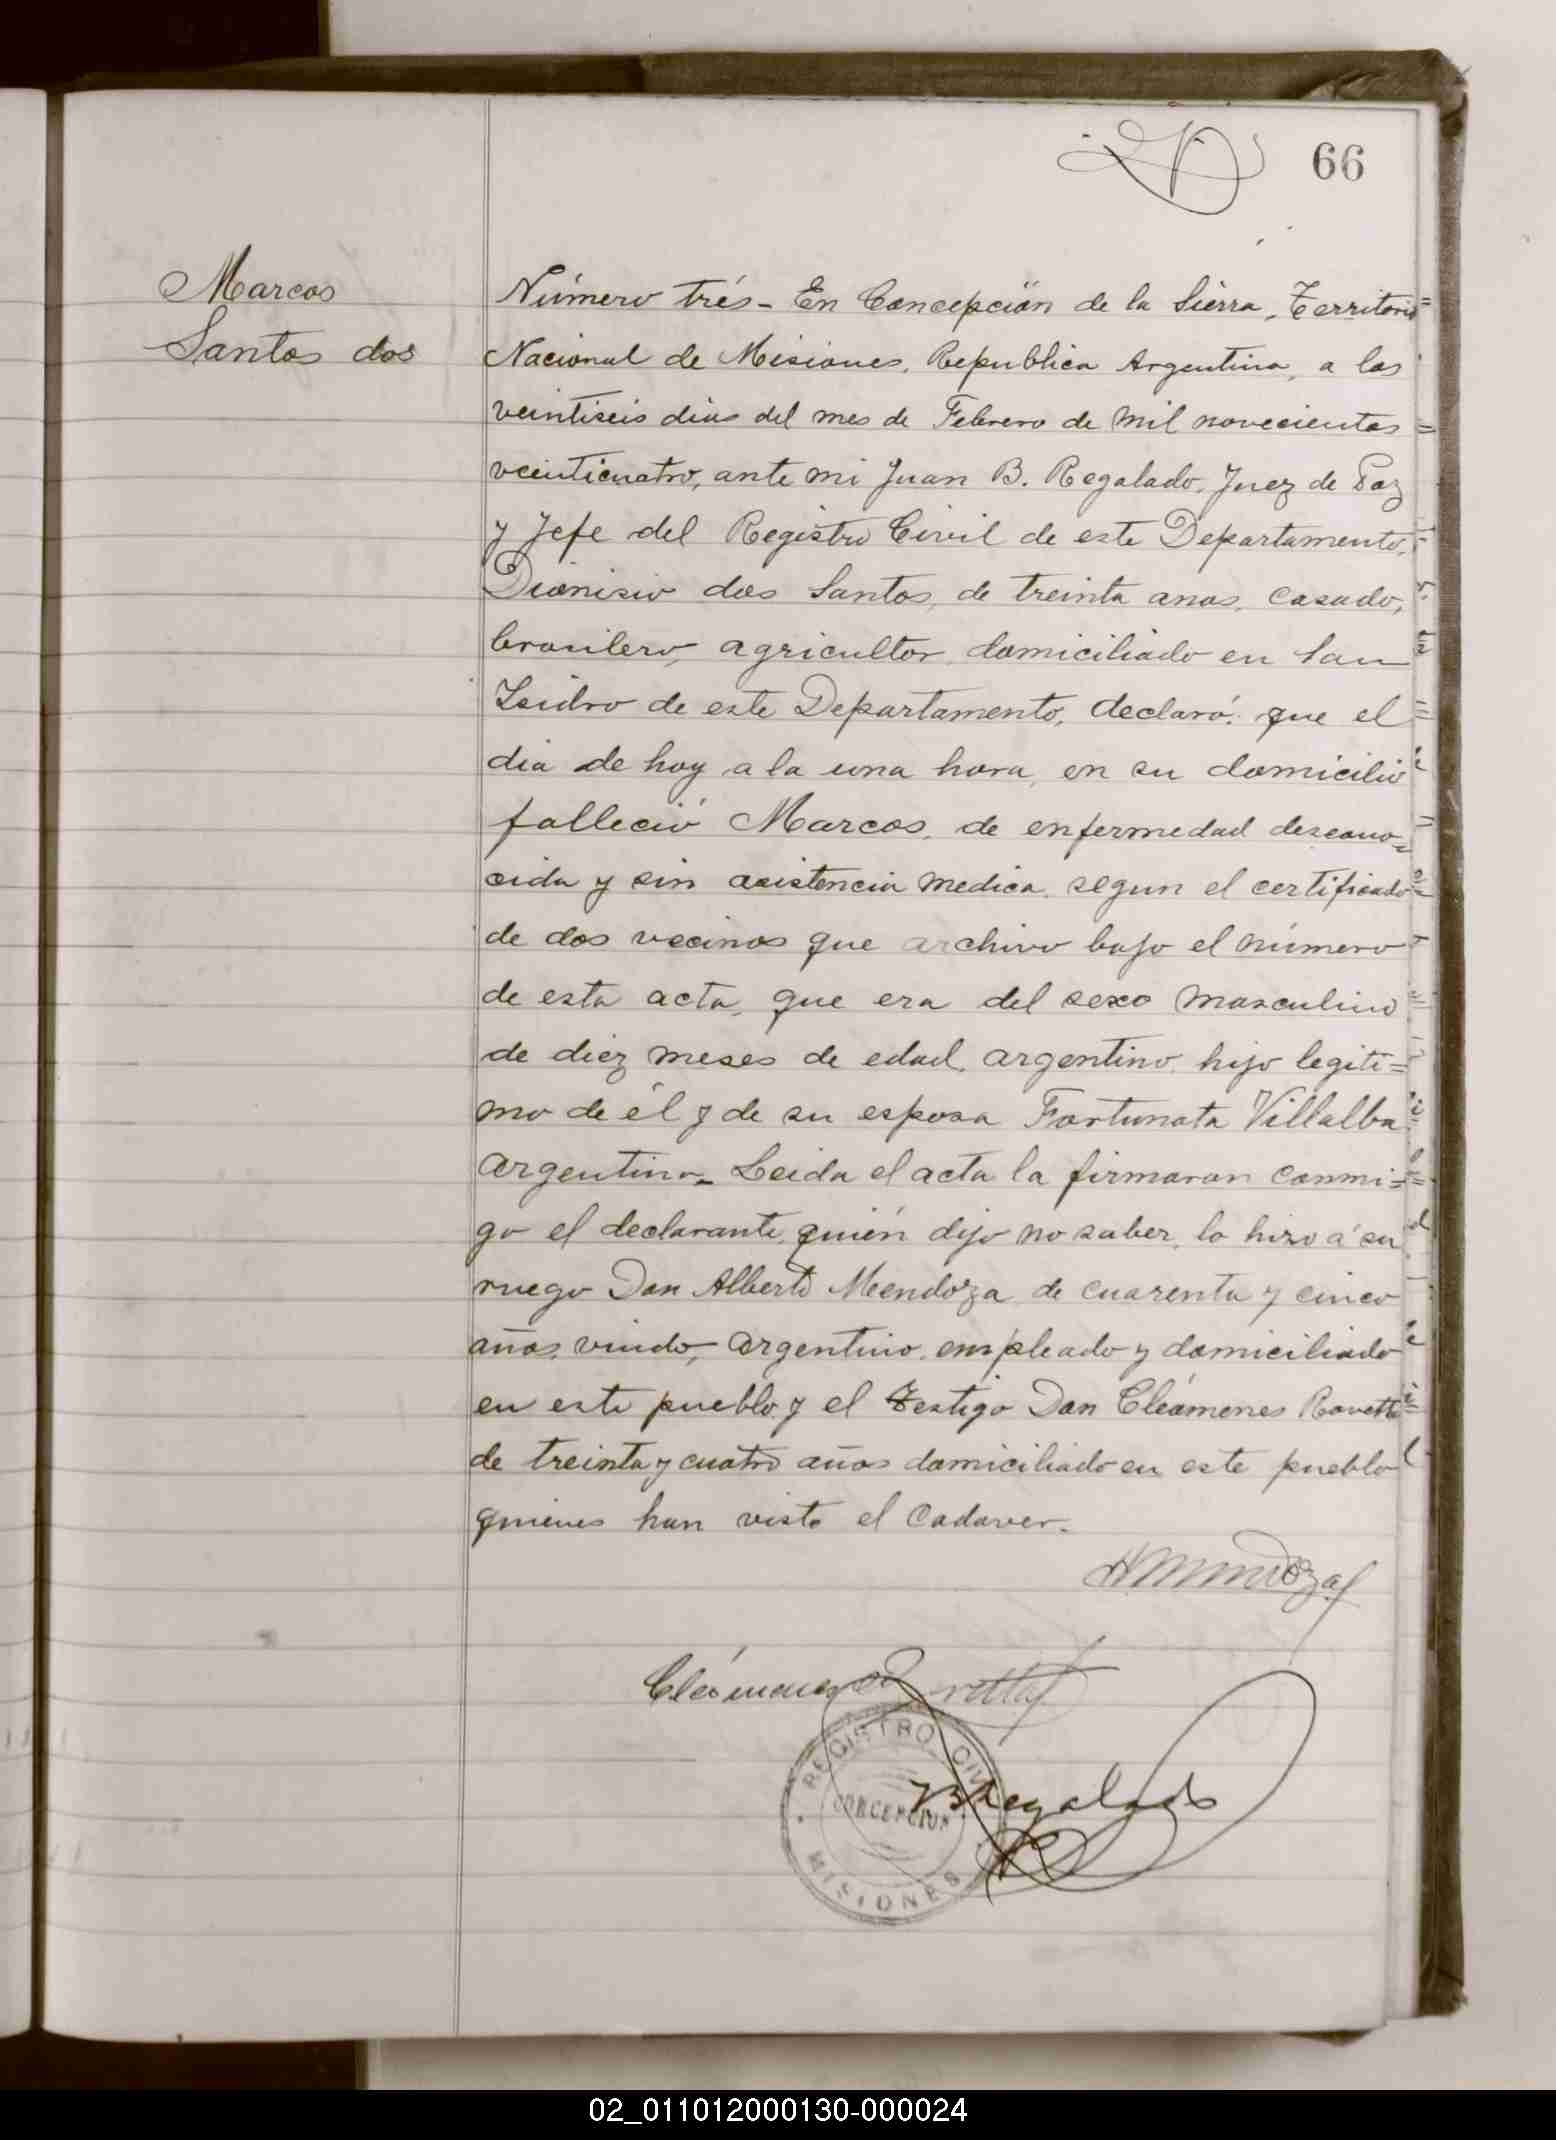 66
Marcos
Santos dos
Número trés - En Concepción de la Sierra, Territorio
Nacional de Misiones, Republica Argentina, a los
veintiseis dias del mes de Febrero de mil novecientos
veinticuatro, ante mi Juan B. Regalado, Juez de Paz
y Jefe del Registro Civil de este Departamento,
Dionisio dos Santos, de treinta anos, casado,
brasilero, agricultor, domiciliado en San
Isidro de este Departamento, declaró: que el
dia de hoy a la una hora, en su domicilio
falleció Marcos, de enfermedad descono=
cida y sin asistencia medica, segun el certificado
de dos vecinos que archivo bajo el número
de esta acta, que era del sexo masculino
de diez meses de edad, argentino, hijo legiti=
mo de él y de su esposa Fortunata Villalba
argentina. Leida el acta la firmaron conmi=
go el declarante, quién dijo no saber, lo hizo á su
ruego Don Alberto Mendoza de cuarenta y cinco
años, viudo, argentino, empleado y domiciliado
en este pueblo y el testigo Don Cleómenes Rovetta
de treinta y cuatro años domiciliado en este pueblo
quienes han visto el cadaver.
A Mendoza
Cleómenes Rovetta
REGISTRO CIVIL
CONCEPCION
MISIONES
JBRegalado
02_011012000130-000024